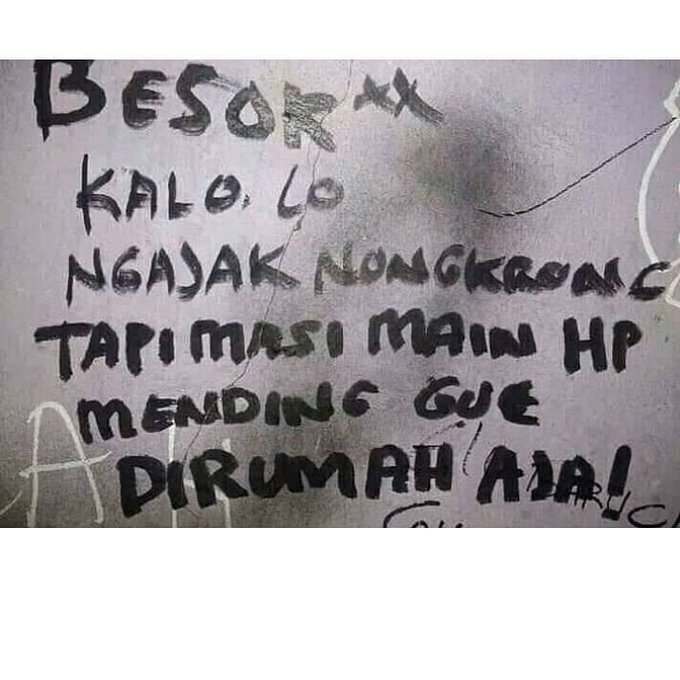 BESOK xx
KALO. LO
NGAJAK NONGKRONG
TAPI MASI MAIN HP
MENDING GUE
DIRUMAH AJA!